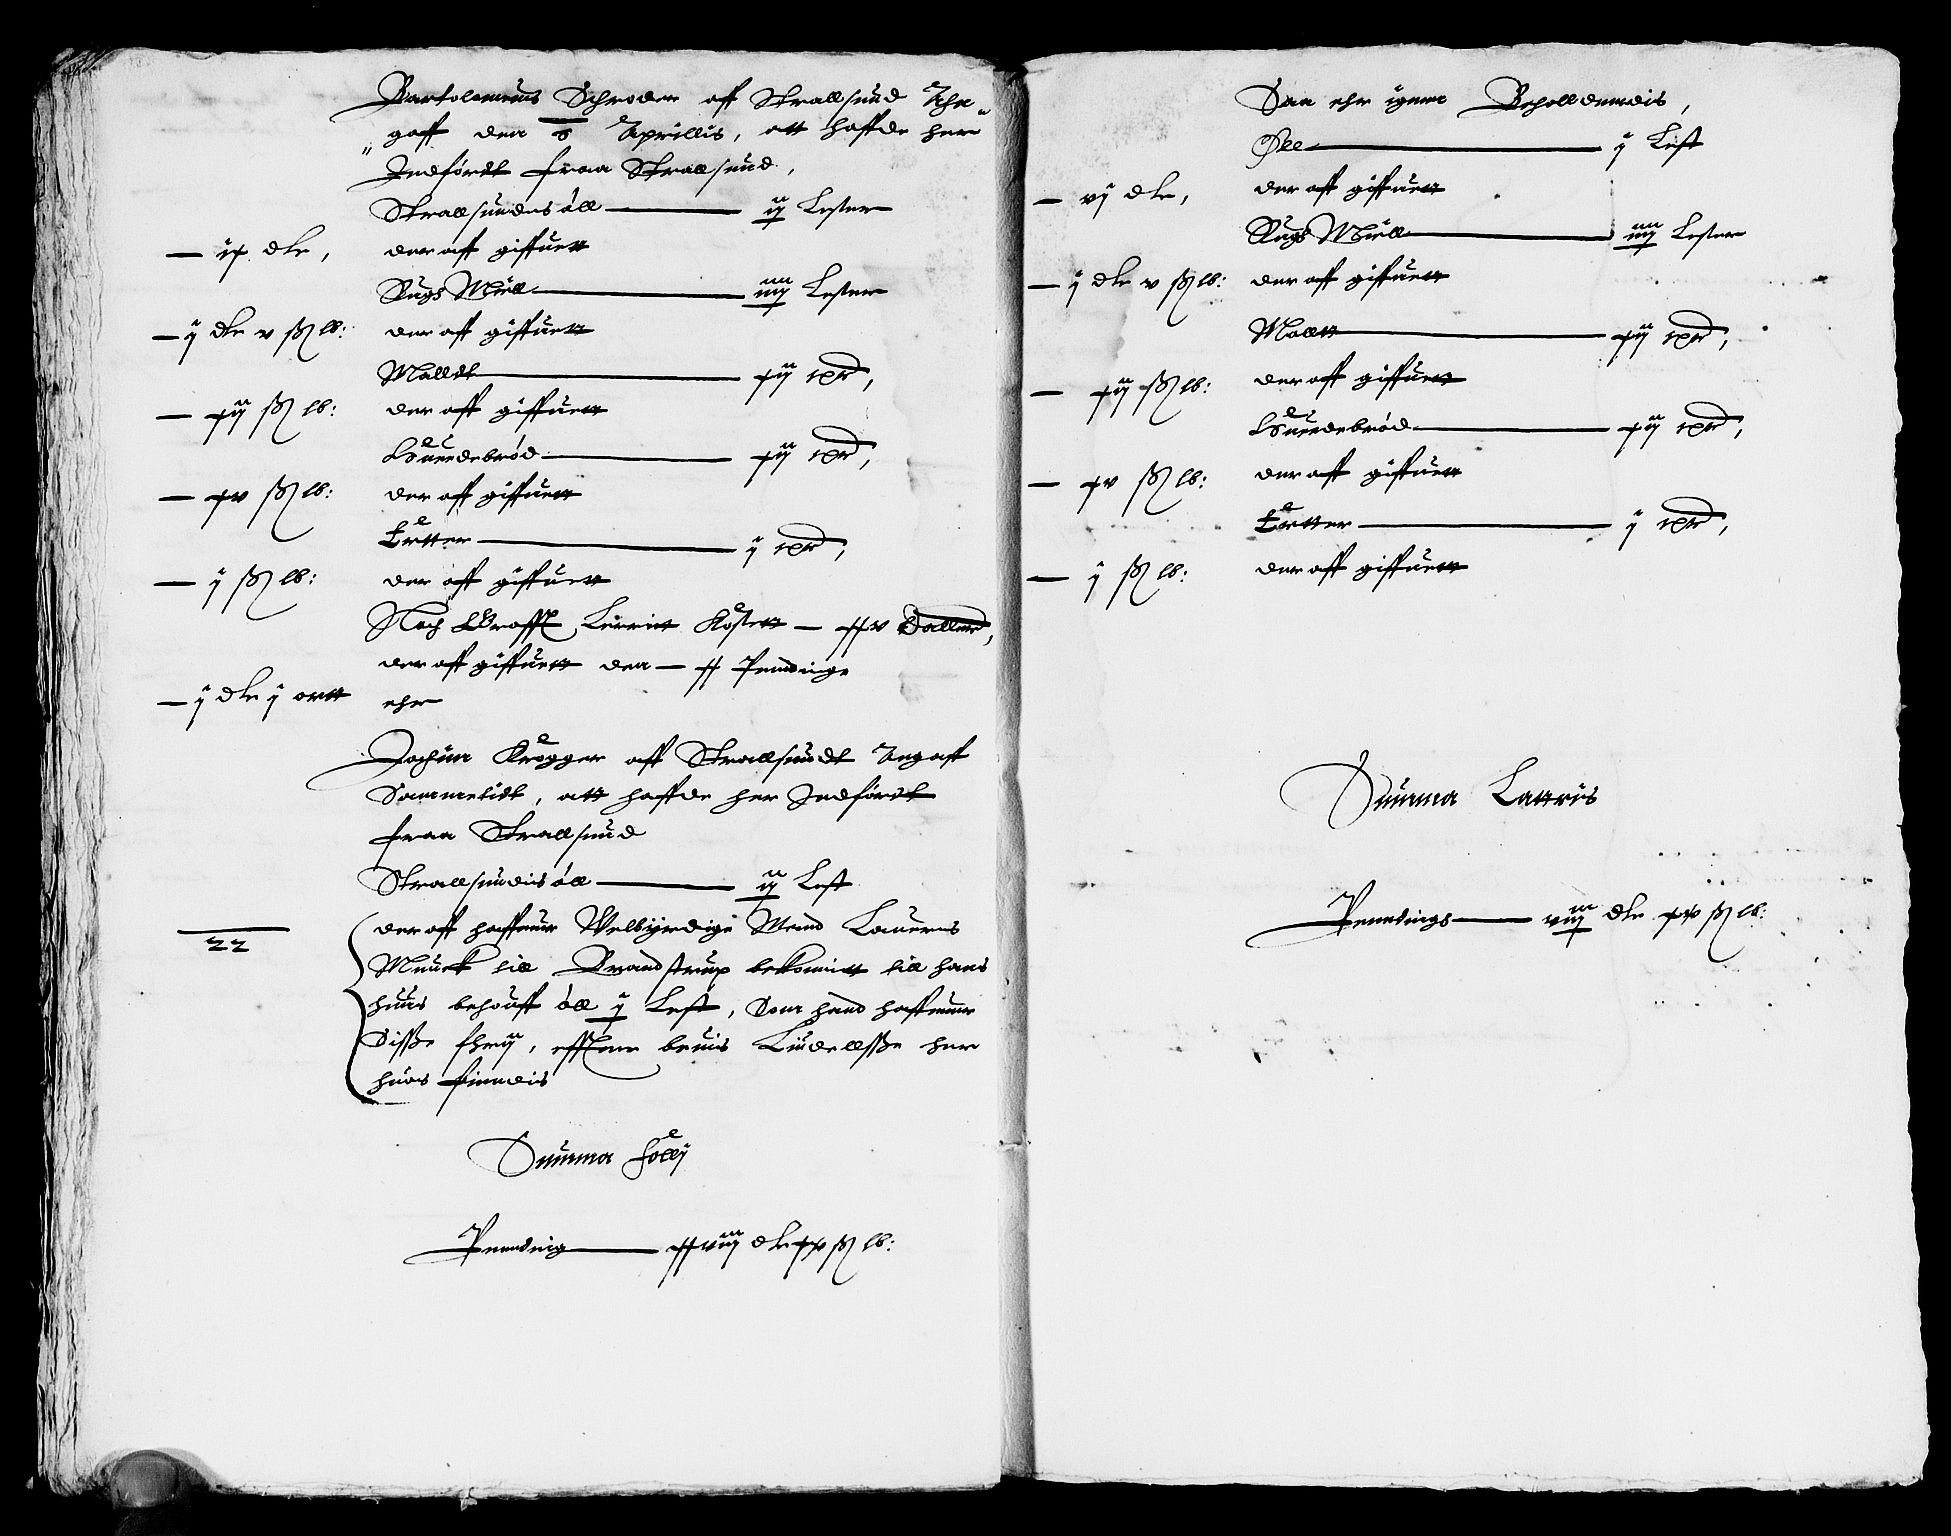 Bartolomeus Schroder aff Strallsund Ahn
gaff den 6 Aprillis, att haffde her
Indførdt fraa Strallsund,
Strallsundes øll — iij Lester
— ix dlr, der aff giffuett
Rugs Miell — iiij Lester
— j dlr v ß lb: der aff giffuett
Malldt — xij tpd,
— xij ß lb: der aff giffuett
Huedebrød — xij tpd,
— xv ß lb: der aff giffuett
Erter — j tpd,
— j ß lb: der aff giffuett
Noch Groff Lerritt Kostett — xxv Daller,
der aff giffuett den — xx Pending
— j dlr j ortt ehr
Jochim Krøgger aff Strallsundt Angaff
Sammetidt, att haffde her Indførdt
fraa Strallsund
Strallsundis øll — ij Lest
der aff haffuer Welbyrdige Mand Lauerns
22
Munck till Brandstrup bekomitt till hans
huus behouff øll j Lest, Som hand haffuer
Disße frij, effter beuis Liudellsße her
hoes findis
Summa folij
Pending — xxviij dlr xv ß lb:
Saa ehr igenn Behollendis,
Øll — j Lest
— vj dlr, der aff giffuett
Rugs Miell — iiij Lester
— j dlr v ß lb: der aff giffuett
Malltt — xij tpd,
— xij ß lb: der aff giffuett
Huedebrød — xij tpd,
— xv ß lb: der aff giffuett
Erter — j tpd,
— j ß lb: der aff giffuett
Summa Latteris
Pendinge — viij dlr xv ß lb: